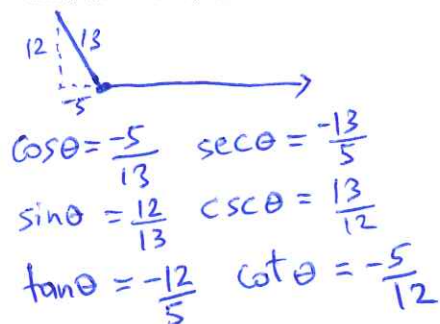 12 13
-5
cosθ = -5/13 secθ = -13/5
sinθ = 12/13 cscθ = 13/12
tanθ = -12/5 cotθ = -5/12